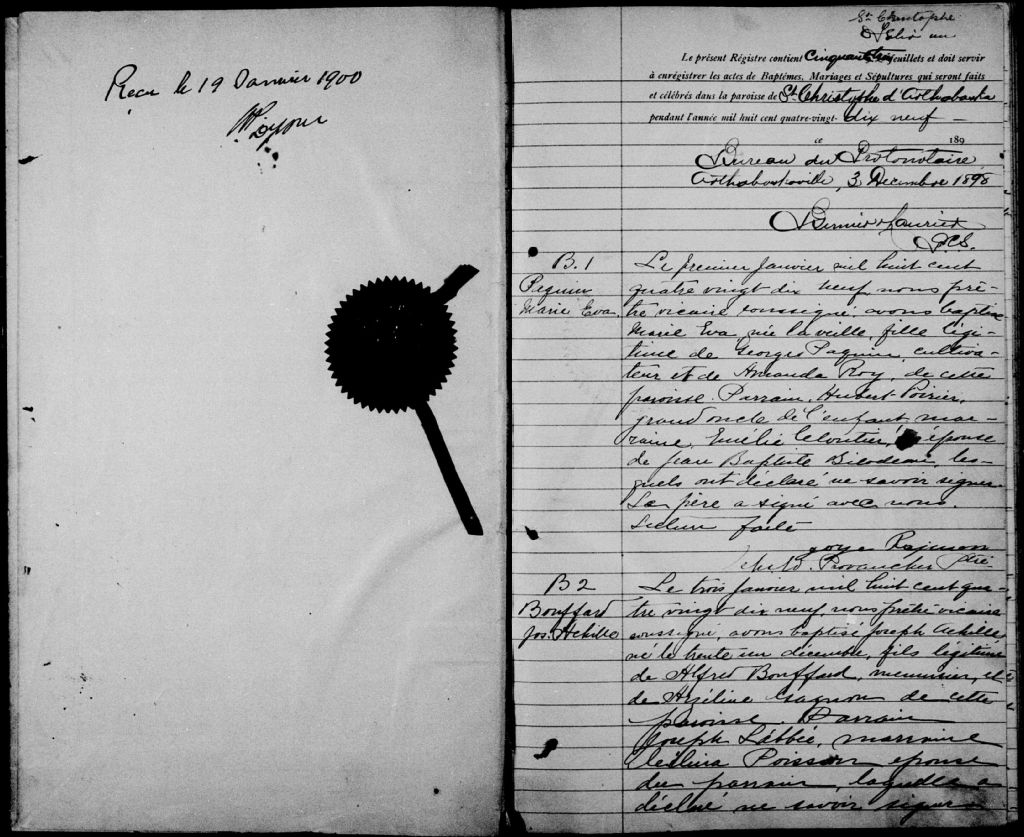 Recu le 19 Janvier 1900
St Christophe
Le présent Régistre contient Cinquante feuillets et doit servir
à enrégistrer les actes de Baptêmes, Mariages et Sépultures qui seront faits
et célébrés dans la paroisse de St Christophe d'Arthabaska
pendant l'année mil huit cent quatre-vingt- dix neuf –
ce 189
Bureau du Protonotaire
Arthabaskaville, 3 Décembre 1898
P.C.S.
B. 1
Pequin
Marie Eva.
Le premier Janvier mil huit cent
quatre vingt dix neuf, nous prê-
tre vicaire soussigné, avons baptisé
Marie Eva, née la veille, fille légi-
time de Georges Paquin, cultiva-
teur et de Amanda Roy, de cette
paroisse. Parrain, Hubert Poirier,
grand oncle de l'enfant, mar-
raine, Emélie Cloutier, épouse
de Jean Baptiste Bilodeau, les-
quels ont déclaré ne savoir signer.
Le père a signé avec nous.
Lecture faite
Provancher ptre
B 2
Bouffard
Jos. Achille
Le trois Janvier mil huit cent qua-
tre vingt dix neuf, nous prêtre vicaire
soussigné, avons baptisé Joseph Achille
né le trente un décembre, fils légitime
de Alfred Bouffard, menuisier, et
de Azéline Gagnon de cette
paroisse. Parrain
Joseph Labbée, marraine
Poisson épouse
du parrain, laquelle a
déclaré ne savoir signer